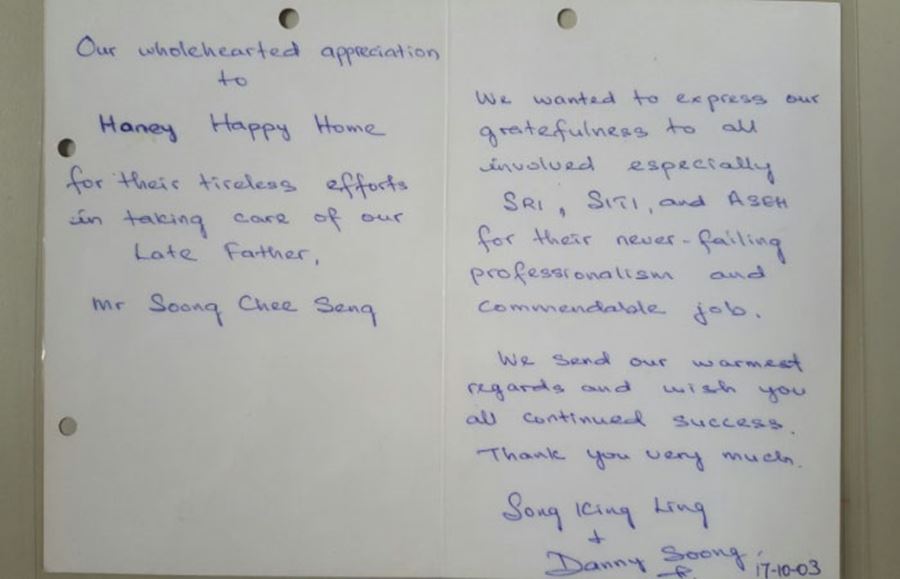 Our wholehearted appreciation
to
Haney Happy Home
for their tireless efforts
in taking care of our
Late Father,
Mr Soong Chee Seng
We wanted to express our
gratefulness to all
involved especially
SRI, SITI, and ASEH
for their never-failing
professionalism and
commendable job.
We send our warmest
regards and wish you
all continued success.
Thank you very much.
Song King Ling
+
Danny Soong
17-10-03